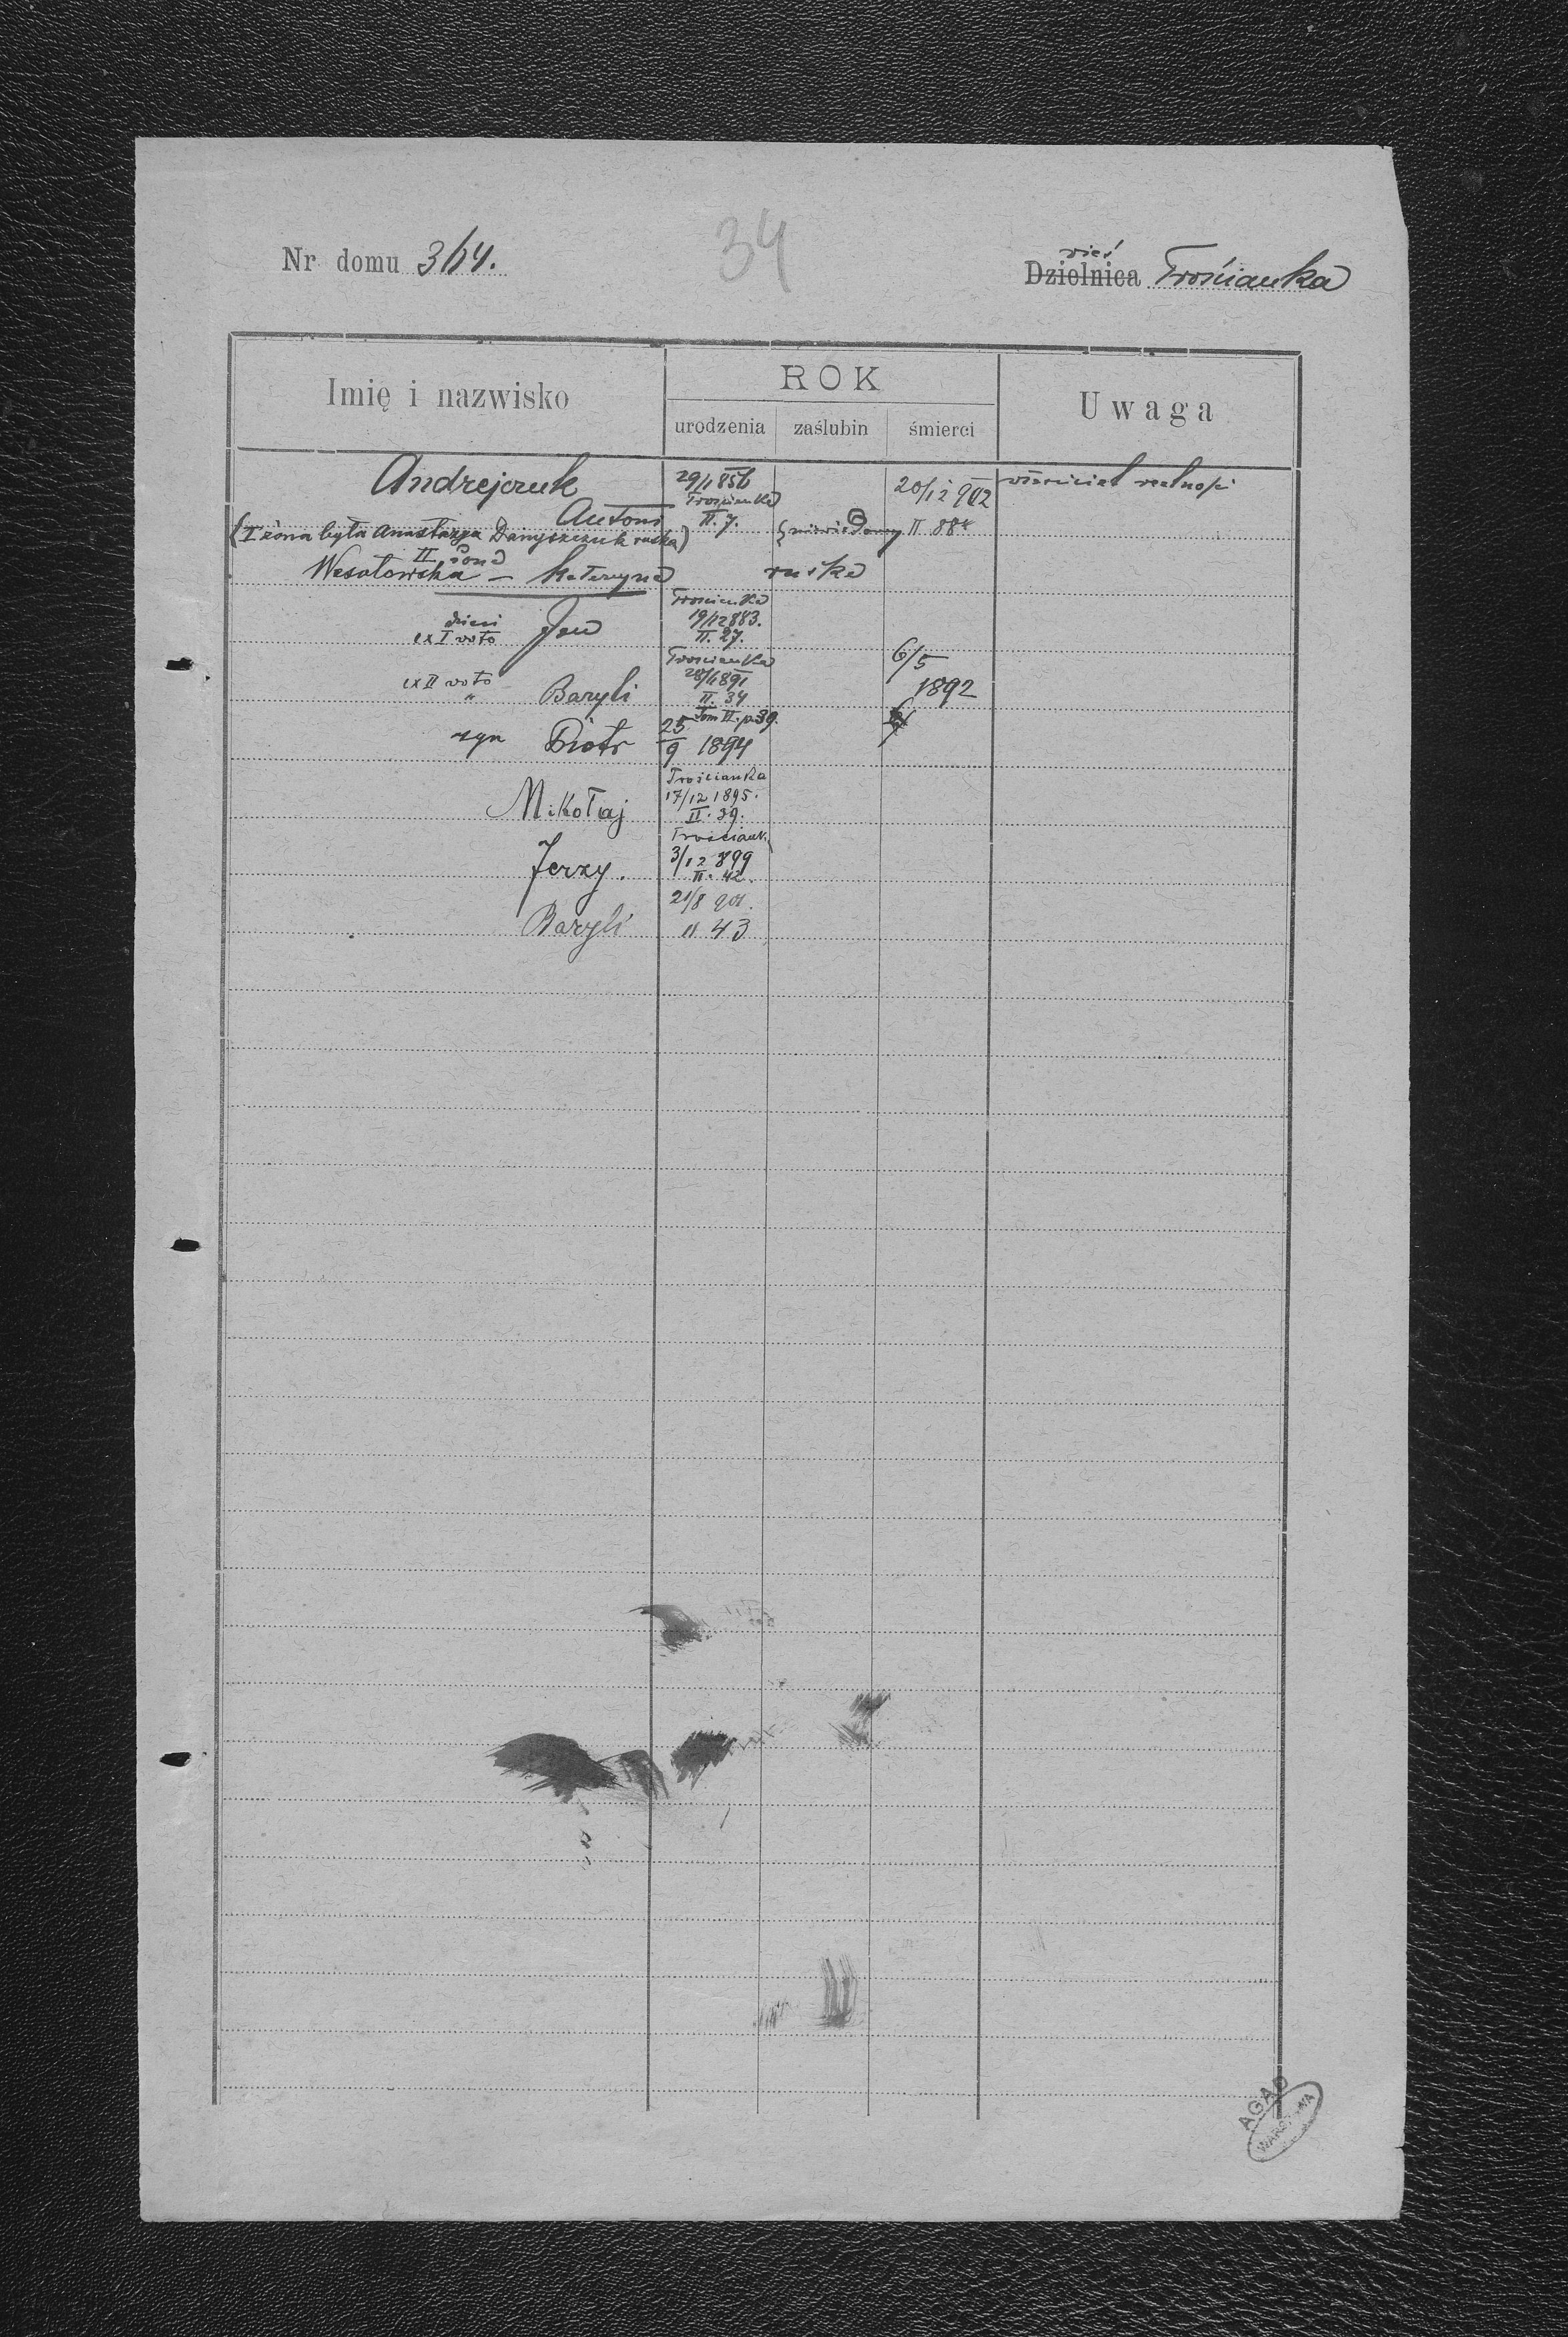 34
Nr domu 364.
wieś
Dzielnica Trościanka
Imię i nazwisko
ROK
urodzenia zaślubin śmierci
Uwaga
Andrejczuk 29/1 856 20/12 902 właściciel realności
Antoni Trościanka II. 7.
(I żona była Anastazya Danyszczuk ruska) niewiadomy II 88
II żona
Wesołowska – Kateryna ruska
dzieci ex I voto Jan Trościanka 19/12 883. II. 27.
ex II voto " Bazyli Trościanka 28/1 891 II. 34 6/5 1892
syn Piotr 25/9 1894 Tom II. p. 39.
Mikołaj Trościanka 17/12 1895. II. 39.
Jerzy. Trościank. 3/12 899 II. 42.
Bazyli 21/8 901. II 43
AGAD
WARSZAWA